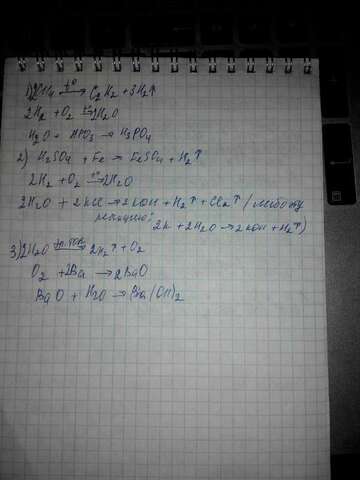 1) 2CH4 t° → C2H2 + 3H2↑
2H2 + O2 t° → 2H2O
H2O + HPO3 → H3PO4
2) H2SO4 + Fe → FeSO4 + H2↑
2H2 + O2 t° → 2H2O
2H2O + 2KCl → 2KOH + H2↑ + Cl2↑ (либо эту
реакцию:
2K + 2H2O → 2KOH + H2↑)
3) 2H2O эл. ток → 2H2↑ + O2
O2 + 2Ba → 2BaO
BaO + H2O → Ba(OH)2